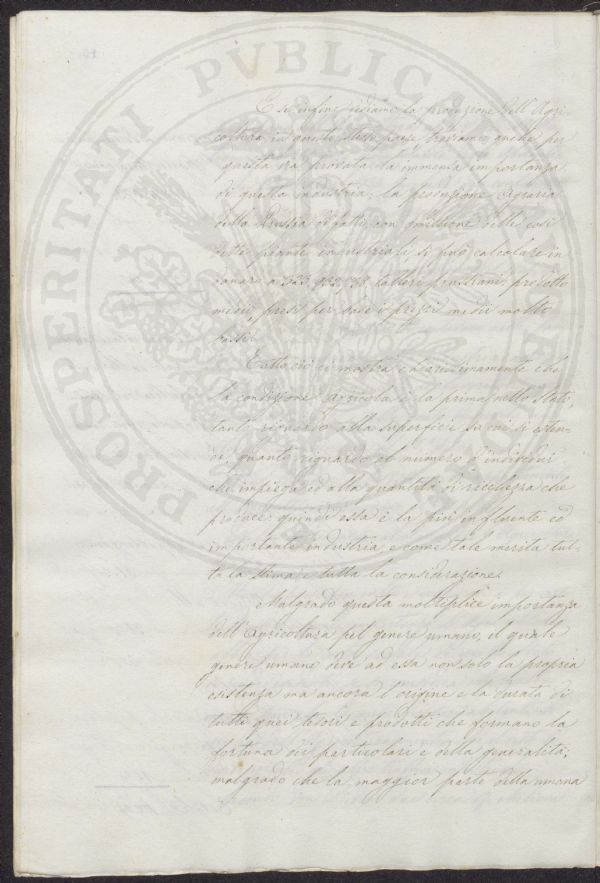 E se infine vediamo la produzione dell'Agri-
coltura in questo stesso paese troviamo anche per
questa via provata la immensa importanza
di questa industria: la produzione agraria
della Prussia difatti con omissione delle così
dette piante industriali si può calcolare in
danaro a talleri prussiani prodotto
medio, presi per base i prezzi medii molto
bassi.
Tutto ciò ci mostra chiarissimamente che
la condizione Agricola è la prima nello stato,
tanto riguardo alla superficie su cui si esten-
de, quanto riguardo al numero d'individui
che impiega ed alla quantità di ricchezza che
produce: quindi essa è la più influente ed
importante industria e come tale merita tut-
ta la stima e tutta la considerazione.
Malgrado questa molteplice importanza
dell'Agricoltura pel genere umano, il quale
genere umano deve ad essa non solo la propria
esistenza ma ancora l'origine e la durata di
tutti quei tesori e prodotti che formano la
fortuna dei particolari e della generalità;
malgrado che la maggior parte della umana
PROSPERITATI PVBLICAE